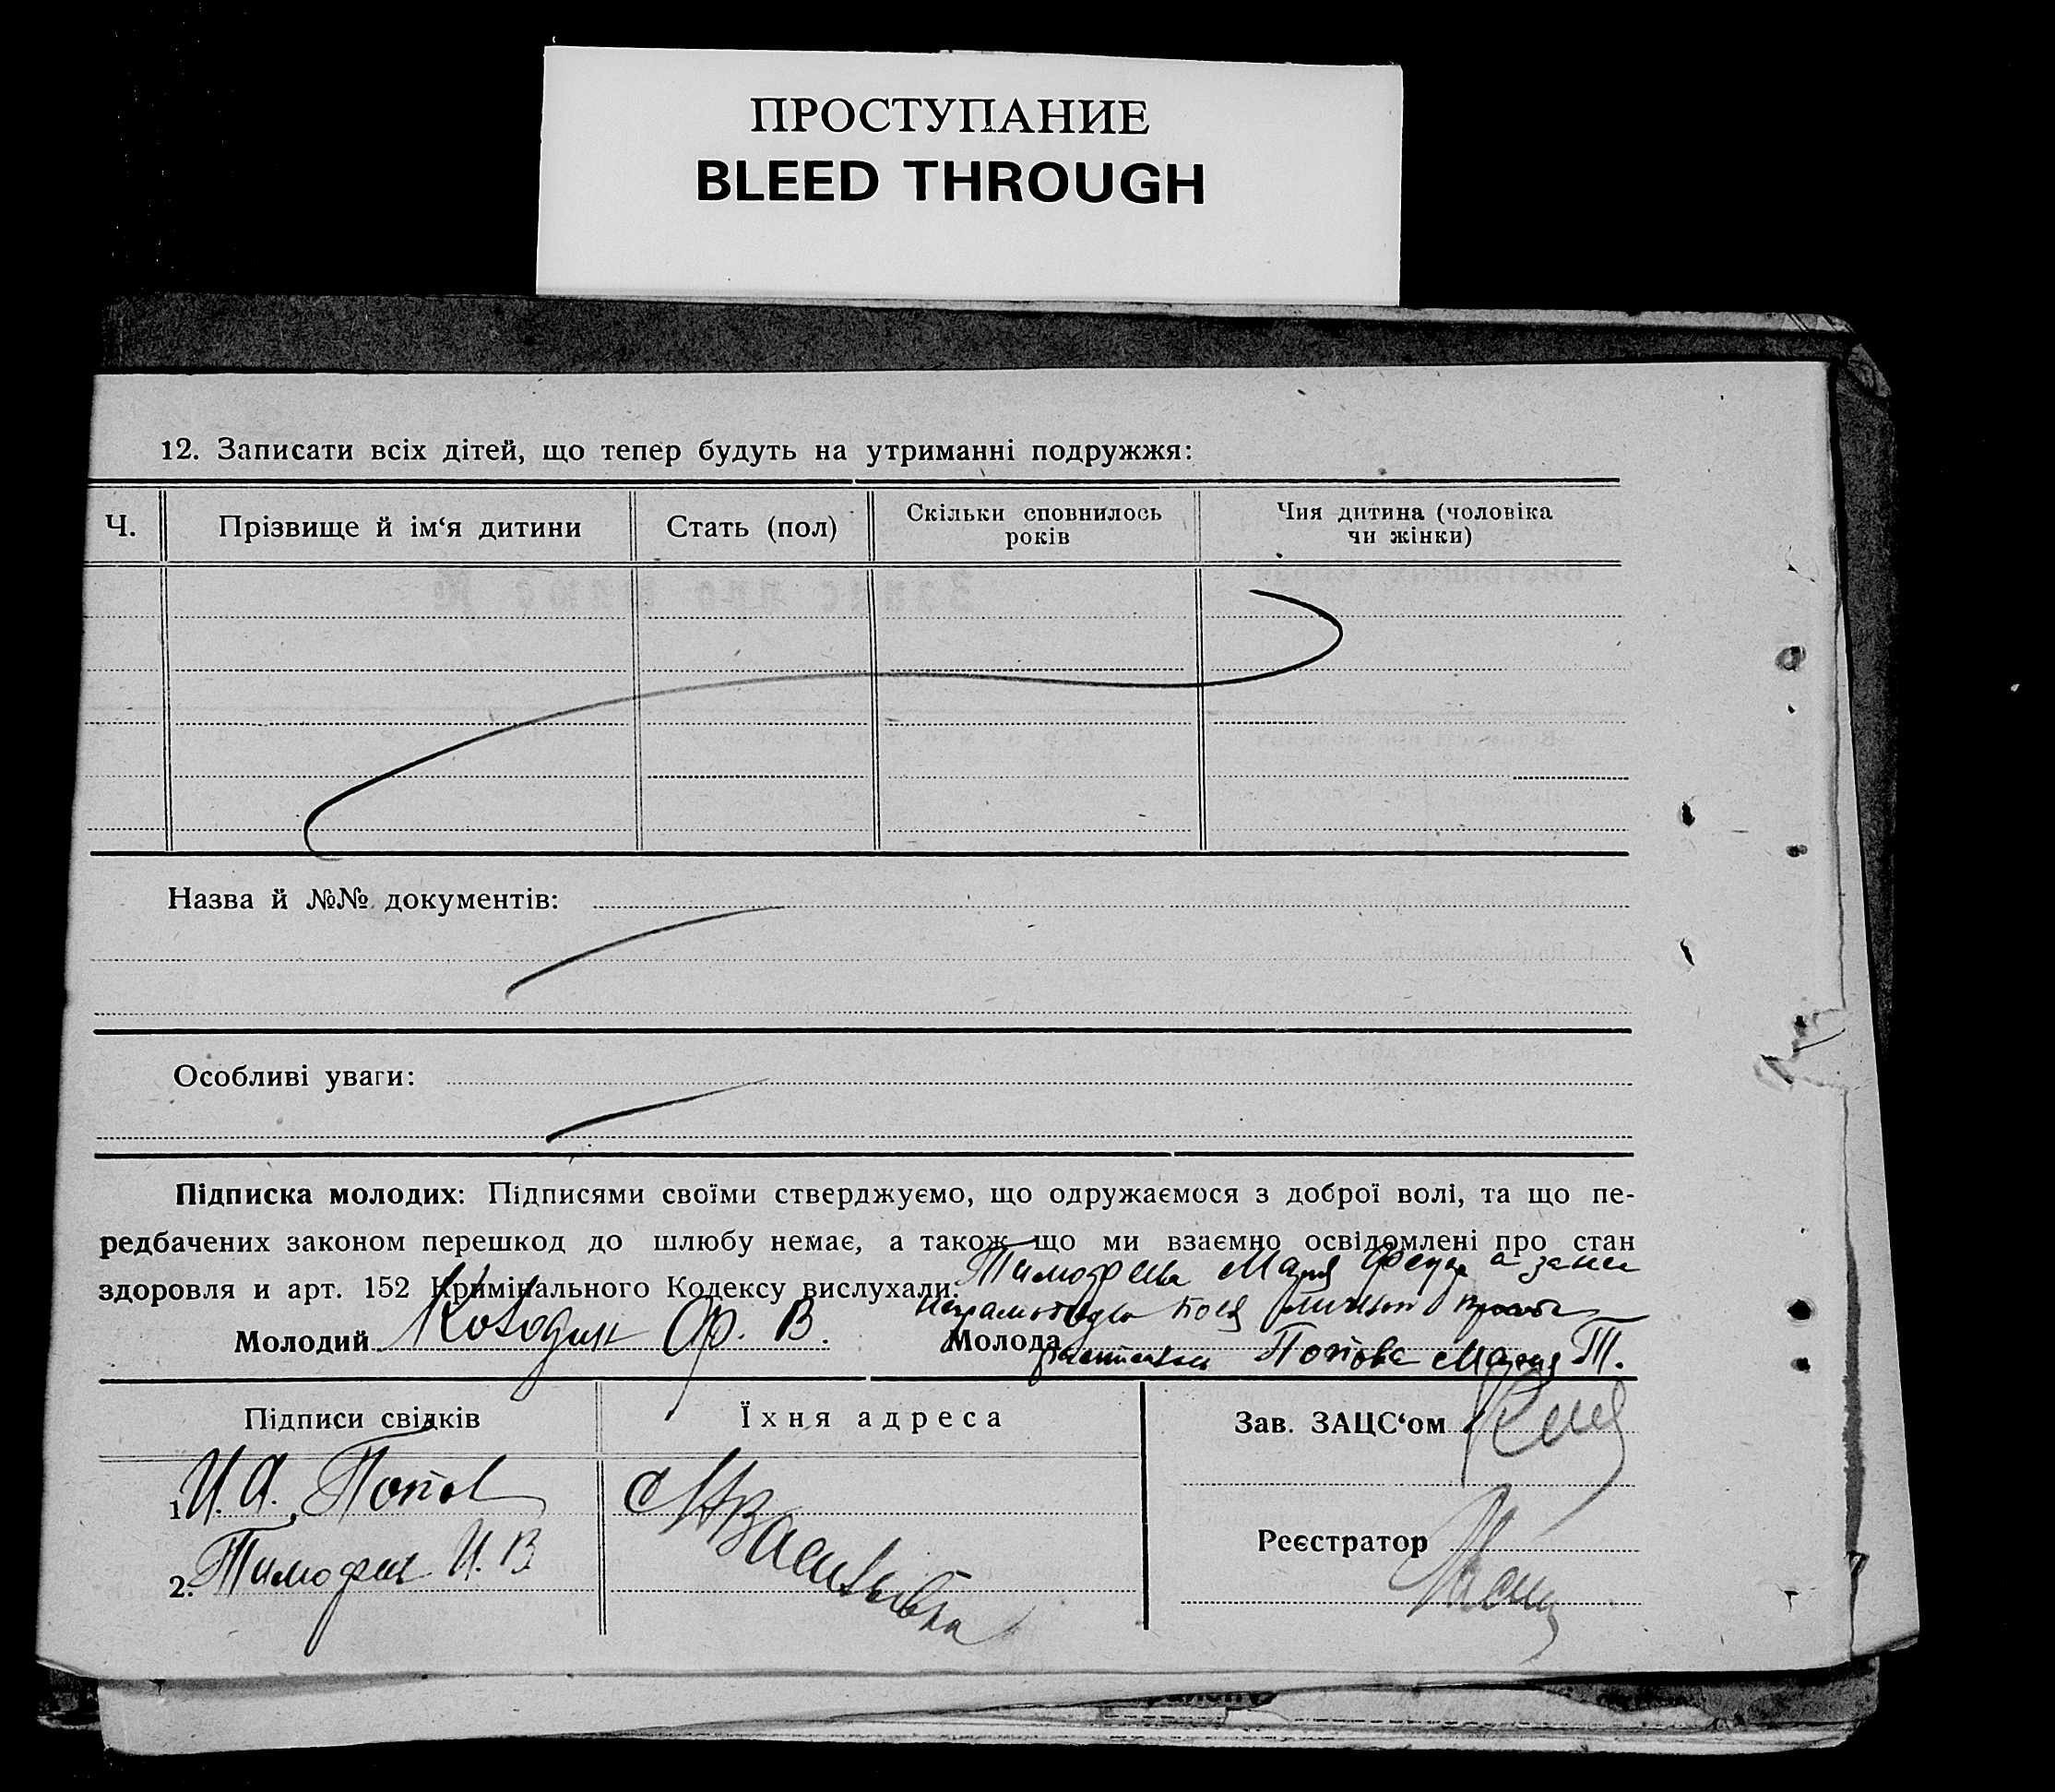 ПРОСТУПАНИЕ
BLEED THROUGH
12. Записати всіх дітей, що тепер будуть на утриманні подружжя:
Ч. Прізвище й ім‘я дитини Стать (пол) Скільки сповнилось років Чия дитина (чоловіка чи жінки)
Назва й №№ документів:
Особливі уваги:
Підписка молодих: Підписями своїми стверджуємо, що одружаємося з доброї волі, та що пе-
редбачених законом перешкод до шлюбу немає, а також що ми взаємно освідомлені про стан
здоровля и арт. 152 Кримінального Кодексу вислухали.
Мария
Молодий Ф. В. Молода Попова Мария Т.
Підписи свідків Їхня адреса Зав. ЗАЦС‘ом
1. И. А. Попов
Реєстратор
2. Тимофеев И. В.